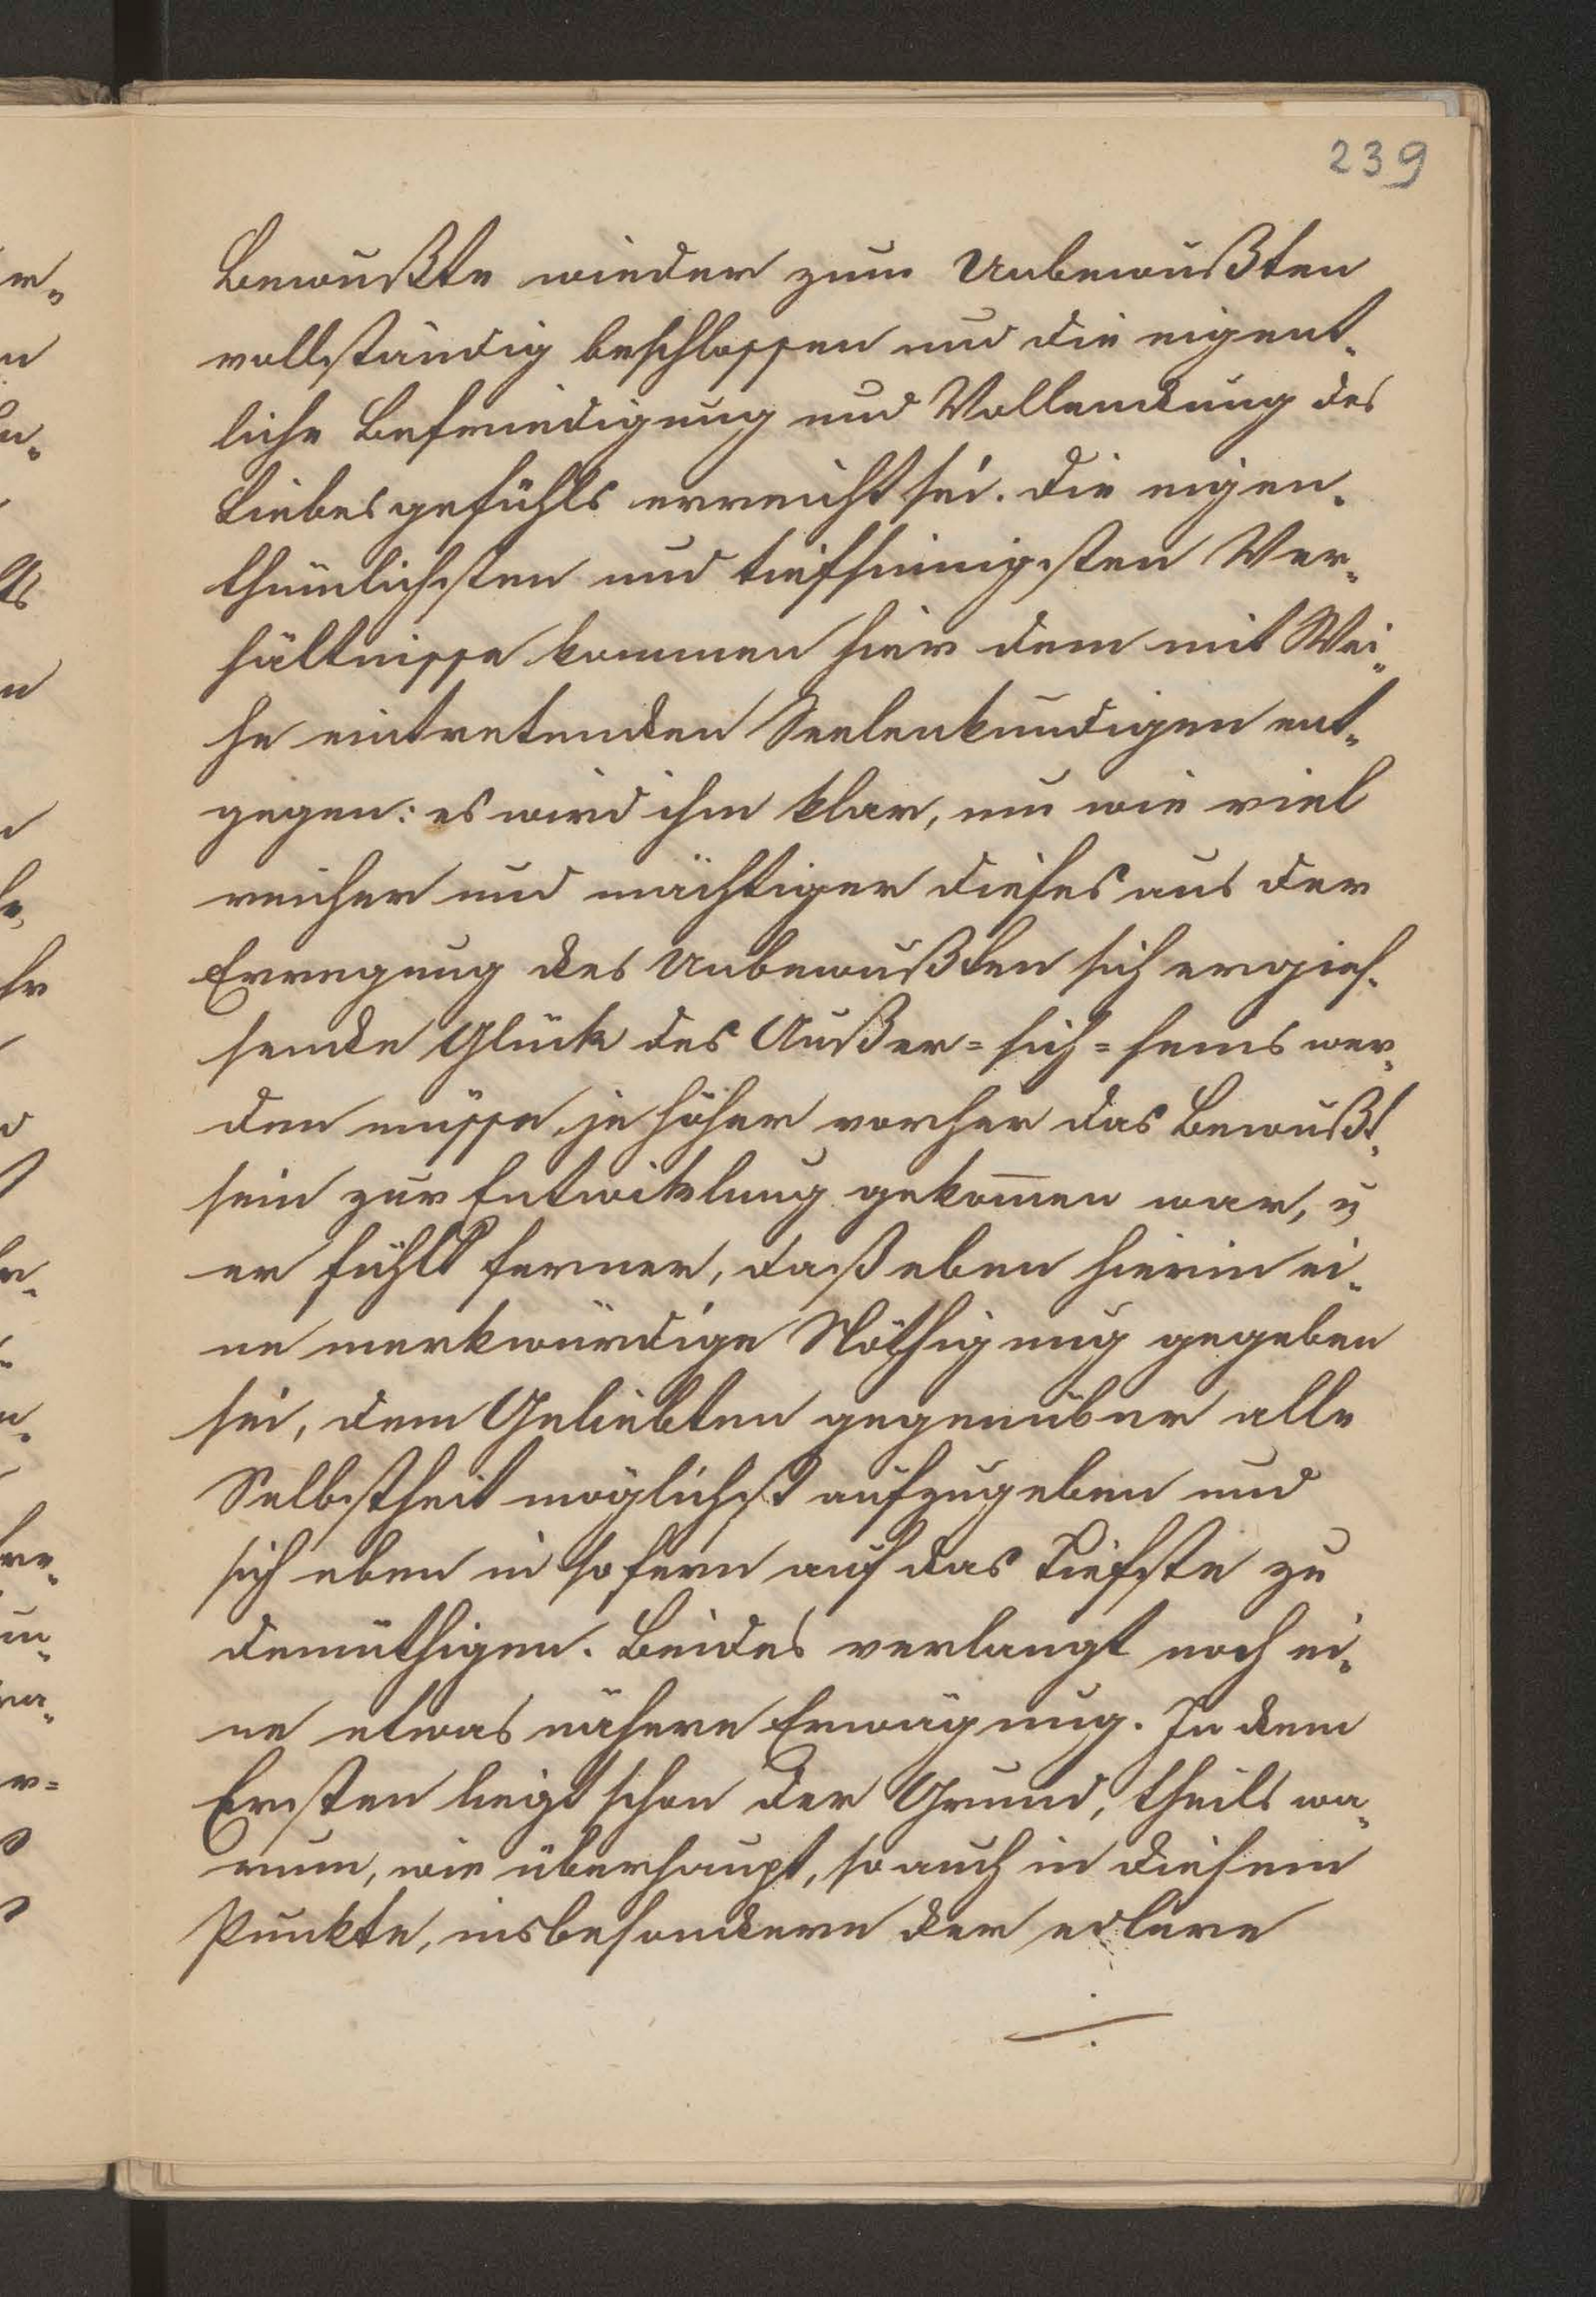 239
Bewußte wieder zum Unbewußten
vollständig beschlossen und die eigent-
liche Befriedigung und Vollendung des
Liebesgefühls erreicht sei. Die eigen-
thümlichsten und tiefsinnigsten Ver-
hältnisse kommen hier dem mit Wei-
he eintretenden Seelenkundigen ent-
gegen: es wird ihm klar, um wie viel
reicher und mächtiger dieses aus der
Erregung des Unbewußten sich ergies-
sende Glück des Außer=sich=seins wer-
den müsse, je höher vorher das Bewußt-
sein zur Entwiklung gekom̄en war, u
er fühlt ferner, daß eben hierin ei-
ne merkwürdige Nöthigung gegeben
sei, dem Geliebten gegenüber alle
Selbstheit möglichst aufzugeben und
sich eben in sofern auf das Tiefste zu
demüthigen. Beides verlangt noch ei-
ne etwas nähere Erwägung. In dem
Ersten liegt schon der Grund, theils wa-
rum, wie überhaupt, so auch in diesem
Punkte, insbesondere der edlere